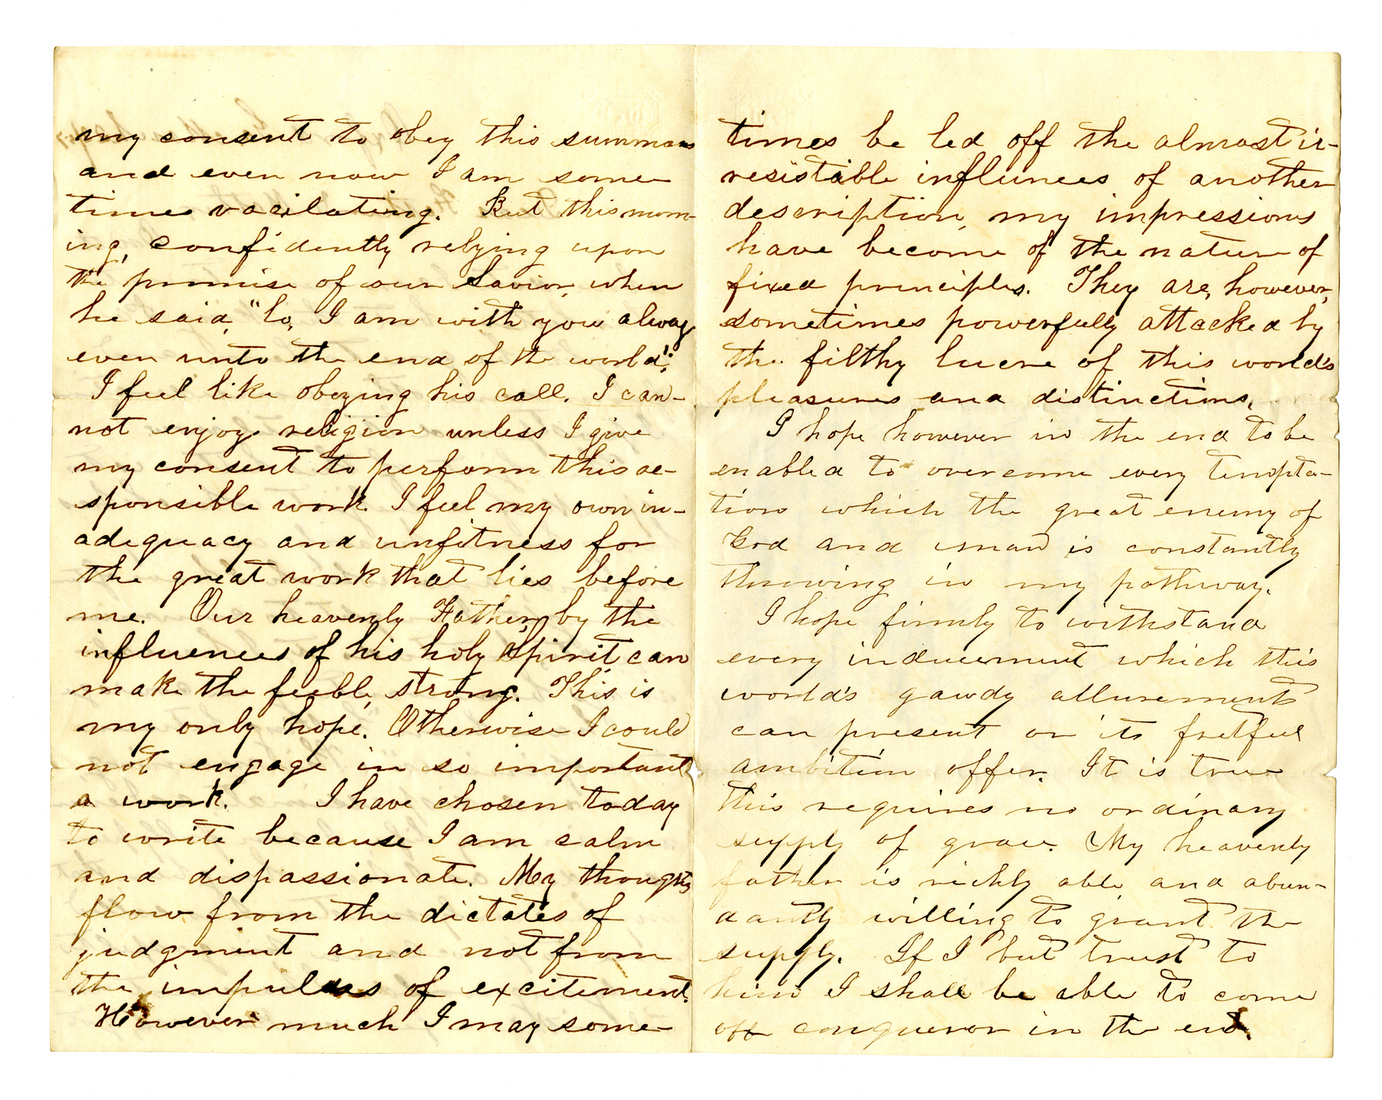 my consent to obey this summons
and even now I am some-
times vacilating. But this morn-
ing, confidently relying upon
the promise of our Savior, when
he said, "lo, I am with you alway
even unto the end of the world":
I feel like obeying his call. I can-
not enjoy religion unless I give
my consent to perform this re-
sponsible work. I feel my own in-
adequacy and unfitness for
the great work that lies before
me. Our heavenly Father, by the
influences of his holy Spirit can
make the feeble, strong. This is
my only hope. Otherwise I could
not engage in so important
a work. I have chosen today
to write because I am calm
and dispassionate. My thoughts
flow from the dictates of
judgment and not from
the impulses of excitement.
However much I may some-
times be led off the almost ir-
resistible influences of another
description, my impressions
have become of the nature of
fixed principles. They are, however,
sometimes powerfully attacked by
the filthy lucre of this world's
pleasures and distinctions.
I hope however in the end to be
enabled to overcome every tempta-
tion which the great enemy of
God and man is constantly
throwing in my pathway.
I hope firmly to withstand
every inducement which this
world's gawdy allurements
can present or its fretful
ambition offer. It is true
this requires no ordinary
supply of grace. My heavenly
father is richly able and abun-
dantly willing to grant the
supply. If I but trust to
him I shall be able to come
off conqueror in the end.